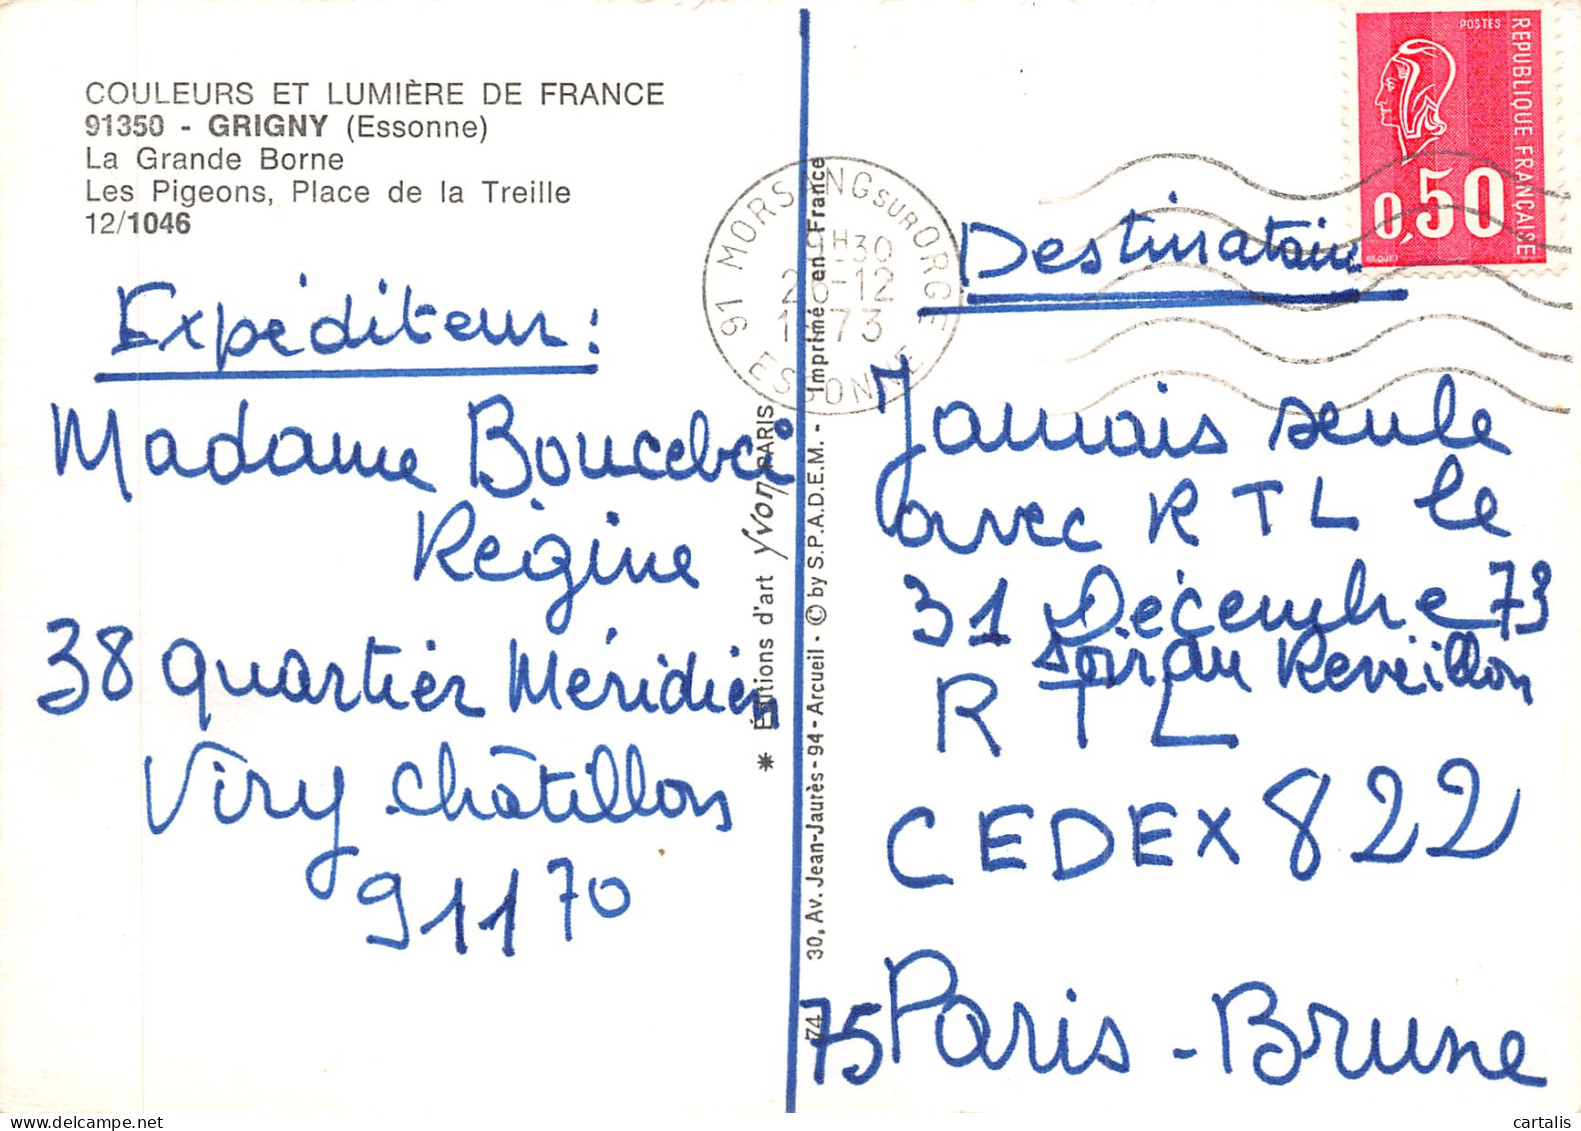 COULEURS ET LUMIÈRE DE FRANCE
91350 - GRIGNY (Essonne)
La Grande Borne
Les Pigeons, Place de la Treille
12/1046
Expéditeur :
Madame
Régine
38 quartier Méridien
Viry châtillon
91170
* Éditions d'art Yvon PARIS
30, Av. Jean-Jaurès - 94 - Arcueil - © by S.P.A.D.E.M. - Imprimé en France
74
91 MORSANG SUR ORGE
H30
26-12
1973
ESSONNE
POSTES
REPUBLIQUE FRANCAISE
0,50
BEQUET
Destinataire
Jamais seule
avec RTL le
31 Décembre 73
soir du Reveillon
RTL
CEDEX 822
75 Paris - Brune
cartalis